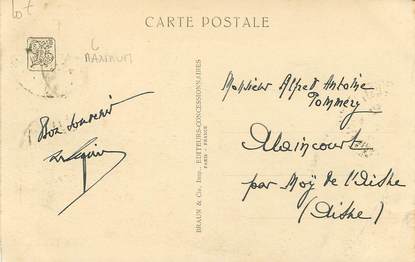 Lot
CARTE POSTALE
Bon souvenir
BRAUN & Cie, Imp., EDITEURS-CONCESSIONNAIRES
PARIS - FRANCE
Monsieur Alfred Antoine
Pommery
Alaincourt
par Moÿ de l'Aisne
(Aisne)